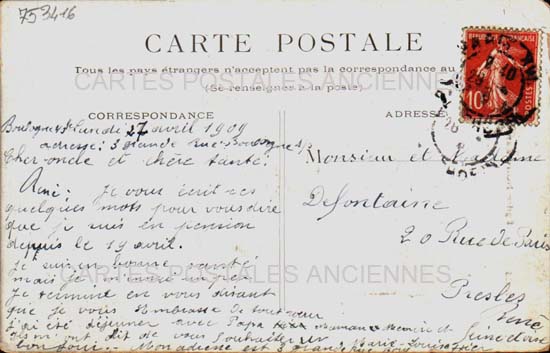 753416
CARTE POSTALE
Tous les pays étrangers n'acceptent pas la correspondance au
(Se renseigner à la poste)
CARTES POSTALES ANCIENNES
CORRESPONDANCE
ADRESSE
Boulogne Lundi 27 avril 1909
adresse: 3 Grande rue Boulogne
Cher oncle et chère tante.
Je vous écrit ces
quelques mots pour vous dire
que je suis en pension
depuis le 19 avril.
Je suis en bonne santé
mais je
Je termine en vous disant
que je vous embrasse de tout cœur
j'ai été déjeuner avec Papa maman
ont dit de vous souhaiter un
bonjour. Mon adresse est 3 Grande rue
Monsieur et Madame
Defontaine
20 Rue de Paris
Presles
Seine et Oise
CARTES POSTALES ANCIENNES
REPUBLIQUE FRANÇAISE
10
POSTES